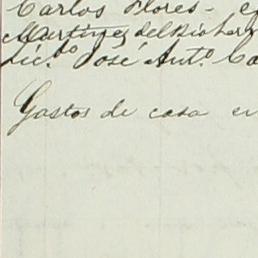 Carlos Flores - e
Martinez del Rio her
Lic.do José Ant.o Ca
Gastos de casa en